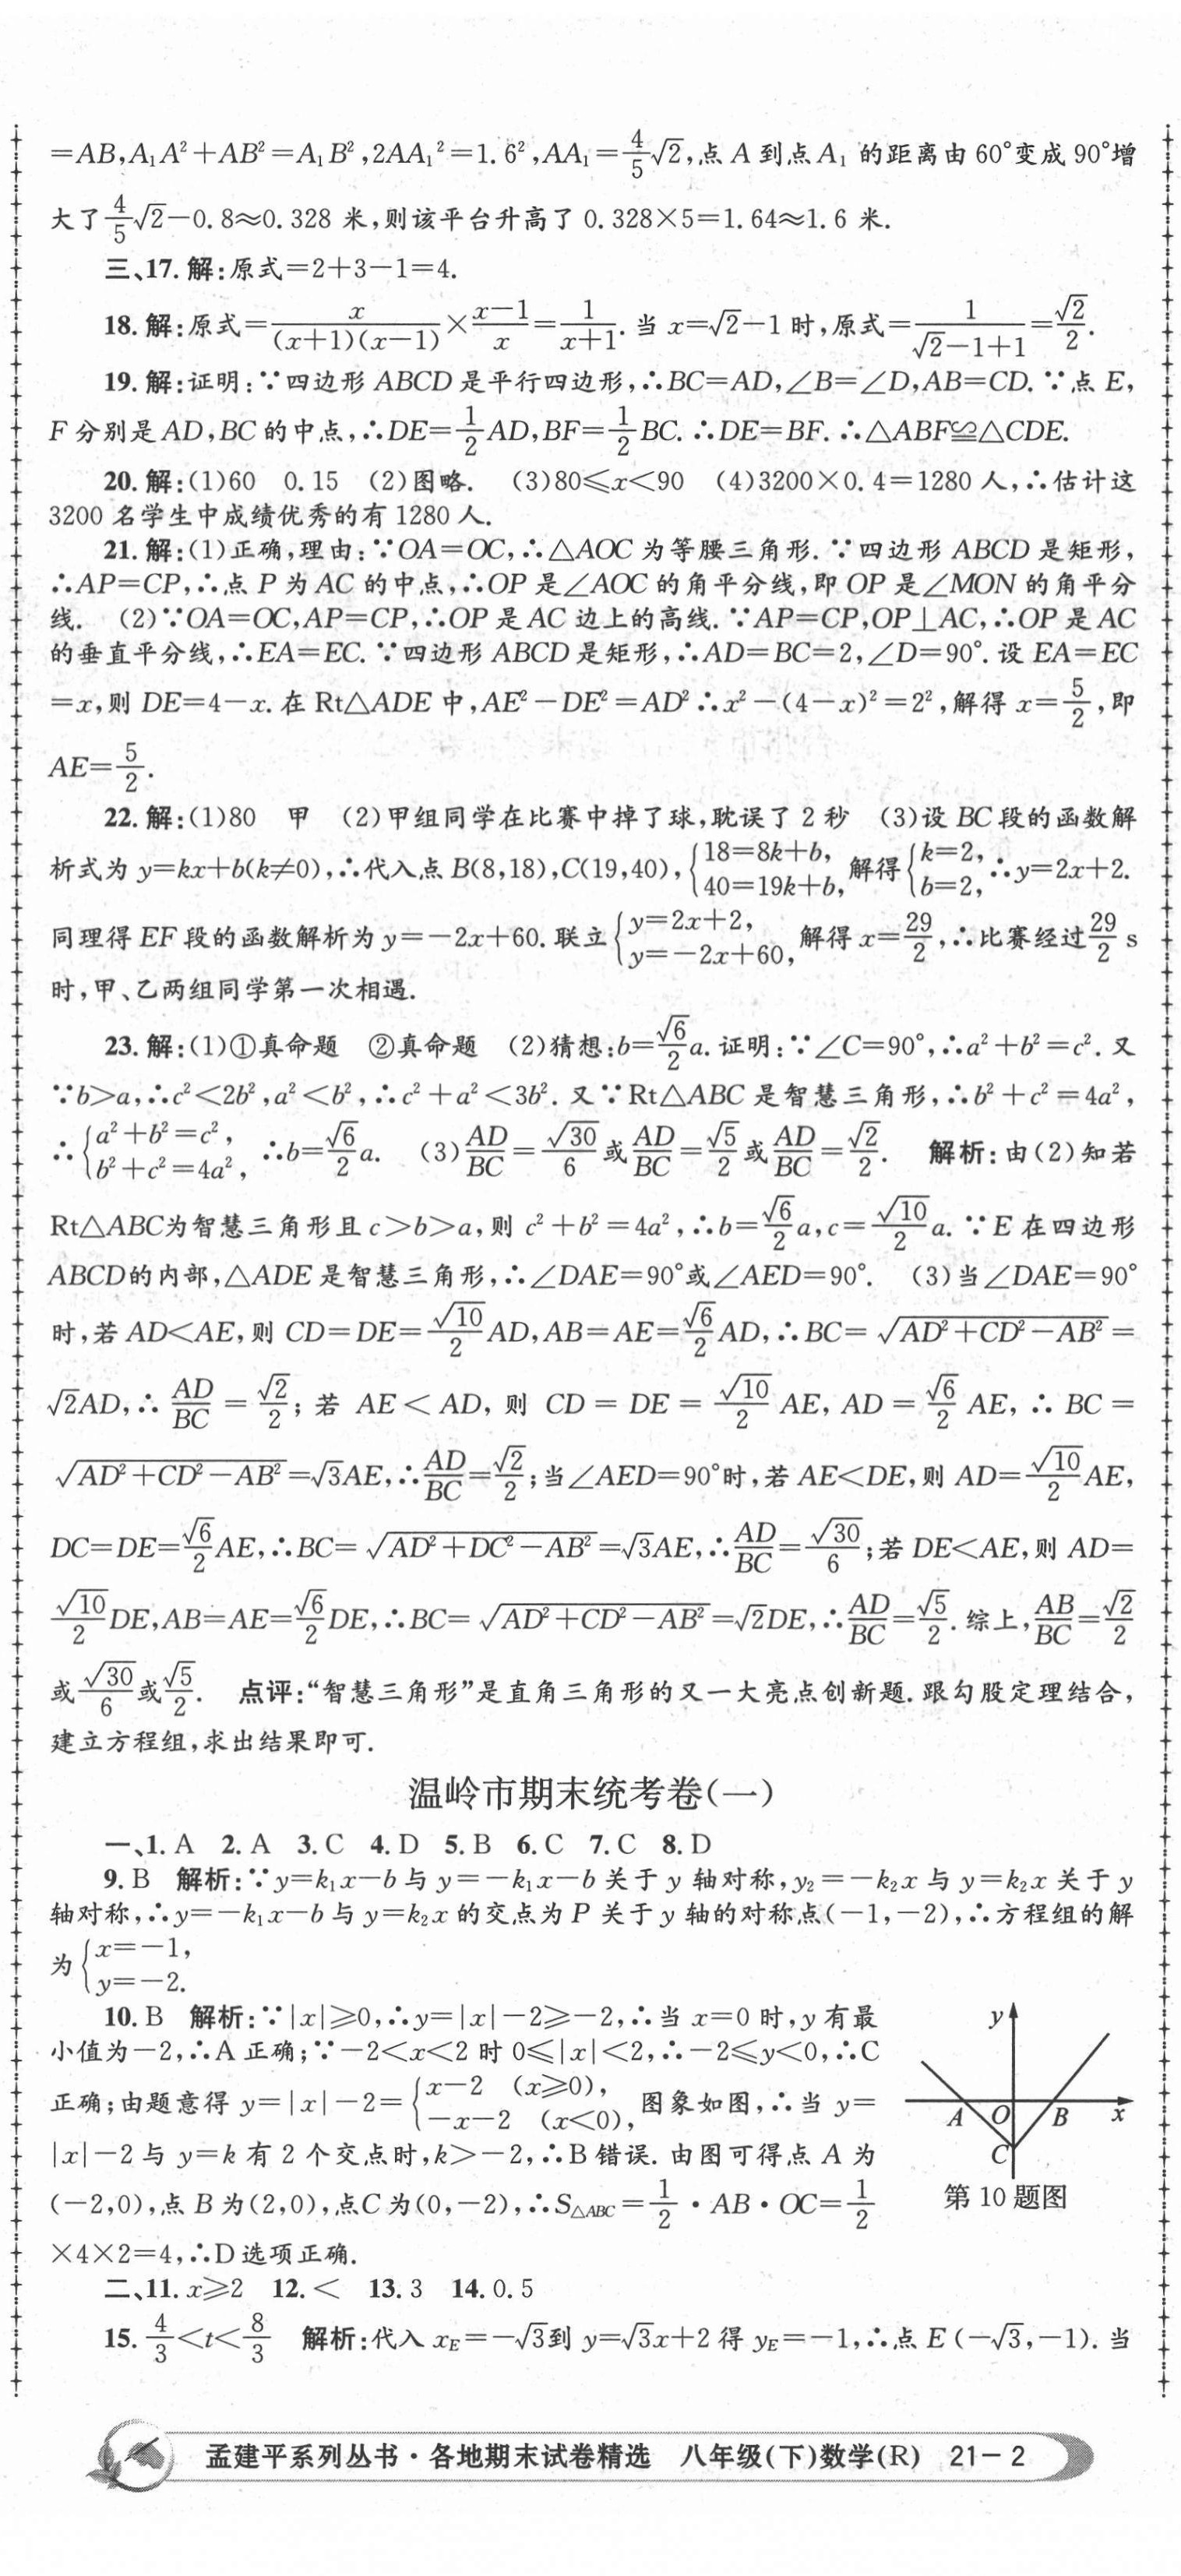 =AB,A₁A²+AB²=A₁B²,2AA₁²=1.6²,AA₁=4/5√2,点A到点A₁的距离由60°变成90°增
大了4/5√2-0.8≈0.328米,则该平台升高了0.328×5=1.64≈1.6米.
三、17.解:原式=2+3-1=4.
18.解:原式=x/((x+1)(x-1))×(x-1)/x=1/(x+1).当x=√2-1时,原式=1/(√2-1+1)=√2/2.
19.解:证明:∵四边形ABCD是平行四边形,∴BC=AD,∠B=∠D,AB=CD.∵点E,
F分别是AD,BC的中点,∴DE=1/2AD,BF=1/2BC.∴DE=BF.∴△ABF≌△CDE.
20.解:(1)60 0.15 (2)图略. (3)80≤x<90 (4)3200×0.4=1280人,∴估计这
3200名学生中成绩优秀的有1280人.
21.解:(1)正确,理由:∵OA=OC,∴△AOC为等腰三角形.∵四边形ABCD是矩形,
∴AP=CP,∴点P为AC的中点,∴OP是∠AOC的角平分线,即OP是∠MON的角平分
线. (2)∵OA=OC,AP=CP,∴OP是AC边上的高线.∵AP=CP,OP⊥AC,∴OP是AC
的垂直平分线,∴EA=EC.∵四边形ABCD是矩形,∴AD=BC=2,∠D=90°.设EA=EC
=x,则DE=4-x.在Rt△ADE中,AE²-DE²=AD²∴x²-(4-x)²=2²,解得x=5/2,即
AE=5/2.
22.解:(1)80 甲 (2)甲组同学在比赛中掉了球,耽误了2秒 (3)设BC段的函数解
析式为y=kx+b(k≠0),∴代入点B(8,18),C(19,40),{18=8k+b, 40=19k+b,解得{k=2, b=2,∴y=2x+2.
同理得EF段的函数解析为y=-2x+60.联立{y=2x+2, y=-2x+60,解得x=29/2,∴比赛经过29/2 s
时,甲、乙两组同学第一次相遇.
23.解:(1)①真命题 ②真命题 (2)猜想:b=√6/2a.证明:∵∠C=90°,∴a²+b²=c².又
∵b>a,∴c²<2b²,a²<b²,∴c²+a²<3b².又∵Rt△ABC是智慧三角形,∴b²+c²=4a²,
∴{a²+b²=c², b²+c²=4a²,∴b=√6/2a. (3)AD/BC=√30/6或AD/BC=√5/2或AD/BC=√2/2. 解析:由(2)知若
Rt△ABC为智慧三角形且c>b>a,则c²+b²=4a²,∴b=√6/2a,c=√10/2a.∵E在四边形
ABCD的内部,△ADE是智慧三角形,∴∠DAE=90°或∠AED=90°. (3)当∠DAE=90°
时,若AD<AE,则CD=DE=√10/2AD,AB=AE=√6/2AD,∴BC=√(AD²+CD²-AB²)=
√2AD,∴AD/BC=√2/2;若AE<AD,则CD=DE=√10/2AE,AD=√6/2AE,∴BC=
√(AD²+CD²-AB²)=√3AE,∴AD/BC=√2/2;当∠AED=90°时,若AE<DE,则AD=√10/2AE,
DC=DE=√6/2AE,∴BC=√(AD²+DC²-AB²)=√3AE,∴AD/BC=√30/6;若DE<AE,则AD=
√10/2DE,AB=AE=√6/2DE,∴BC=√(AD²+CD²-AB²)=√2DE,∴AD/BC=√5/2.综上,AB/BC=√2/2
或√30/6或√5/2. 点评:“智慧三角形”是直角三角形的又一大亮点创新题.跟勾股定理结合,
建立方程组,求出结果即可.
温岭市期末统考卷(一)
一、1.A 2.A 3.C 4.D 5.B 6.C 7.C 8.D
9.B 解析:∵y=k₁x-b与y=-k₁x-b关于y轴对称,y₂=-k₂x与y=k₂x关于y
轴对称,∴y=-k₁x-b与y=k₂x的交点为P关于y轴的对称点(-1,-2),∴方程组的解
为{x=-1, y=-2.
10.B 解析:∵|x|≥0,∴y=|x|-2≥-2,∴当x=0时,y有最
小值为-2,∴A正确;∵-2<x<2时0≤|x|<2,∴-2≤y<0,∴C
正确;由题意得y=|x|-2={x-2 (x≥0), -x-2 (x<0),图象如图,∴当y=
|x|-2与y=k有2个交点时,k>-2,∴B错误.由图可得点A为
(-2,0),点B为(2,0),点C为(0,-2),∴S△ABC=1/2·AB·OC=1/2
×4×2=4,∴D选项正确.
y
A O B x
C
第10题图
二、11.x≥2 12.< 13.3 14.0.5
15.4/3<t<8/3 解析:代入xE=-√3到y=√3x+2得yE=-1,∴点E(-√3,-1).当
孟建平系列丛书·各地期末试卷精选 八年级(下)数学(R) 21-2